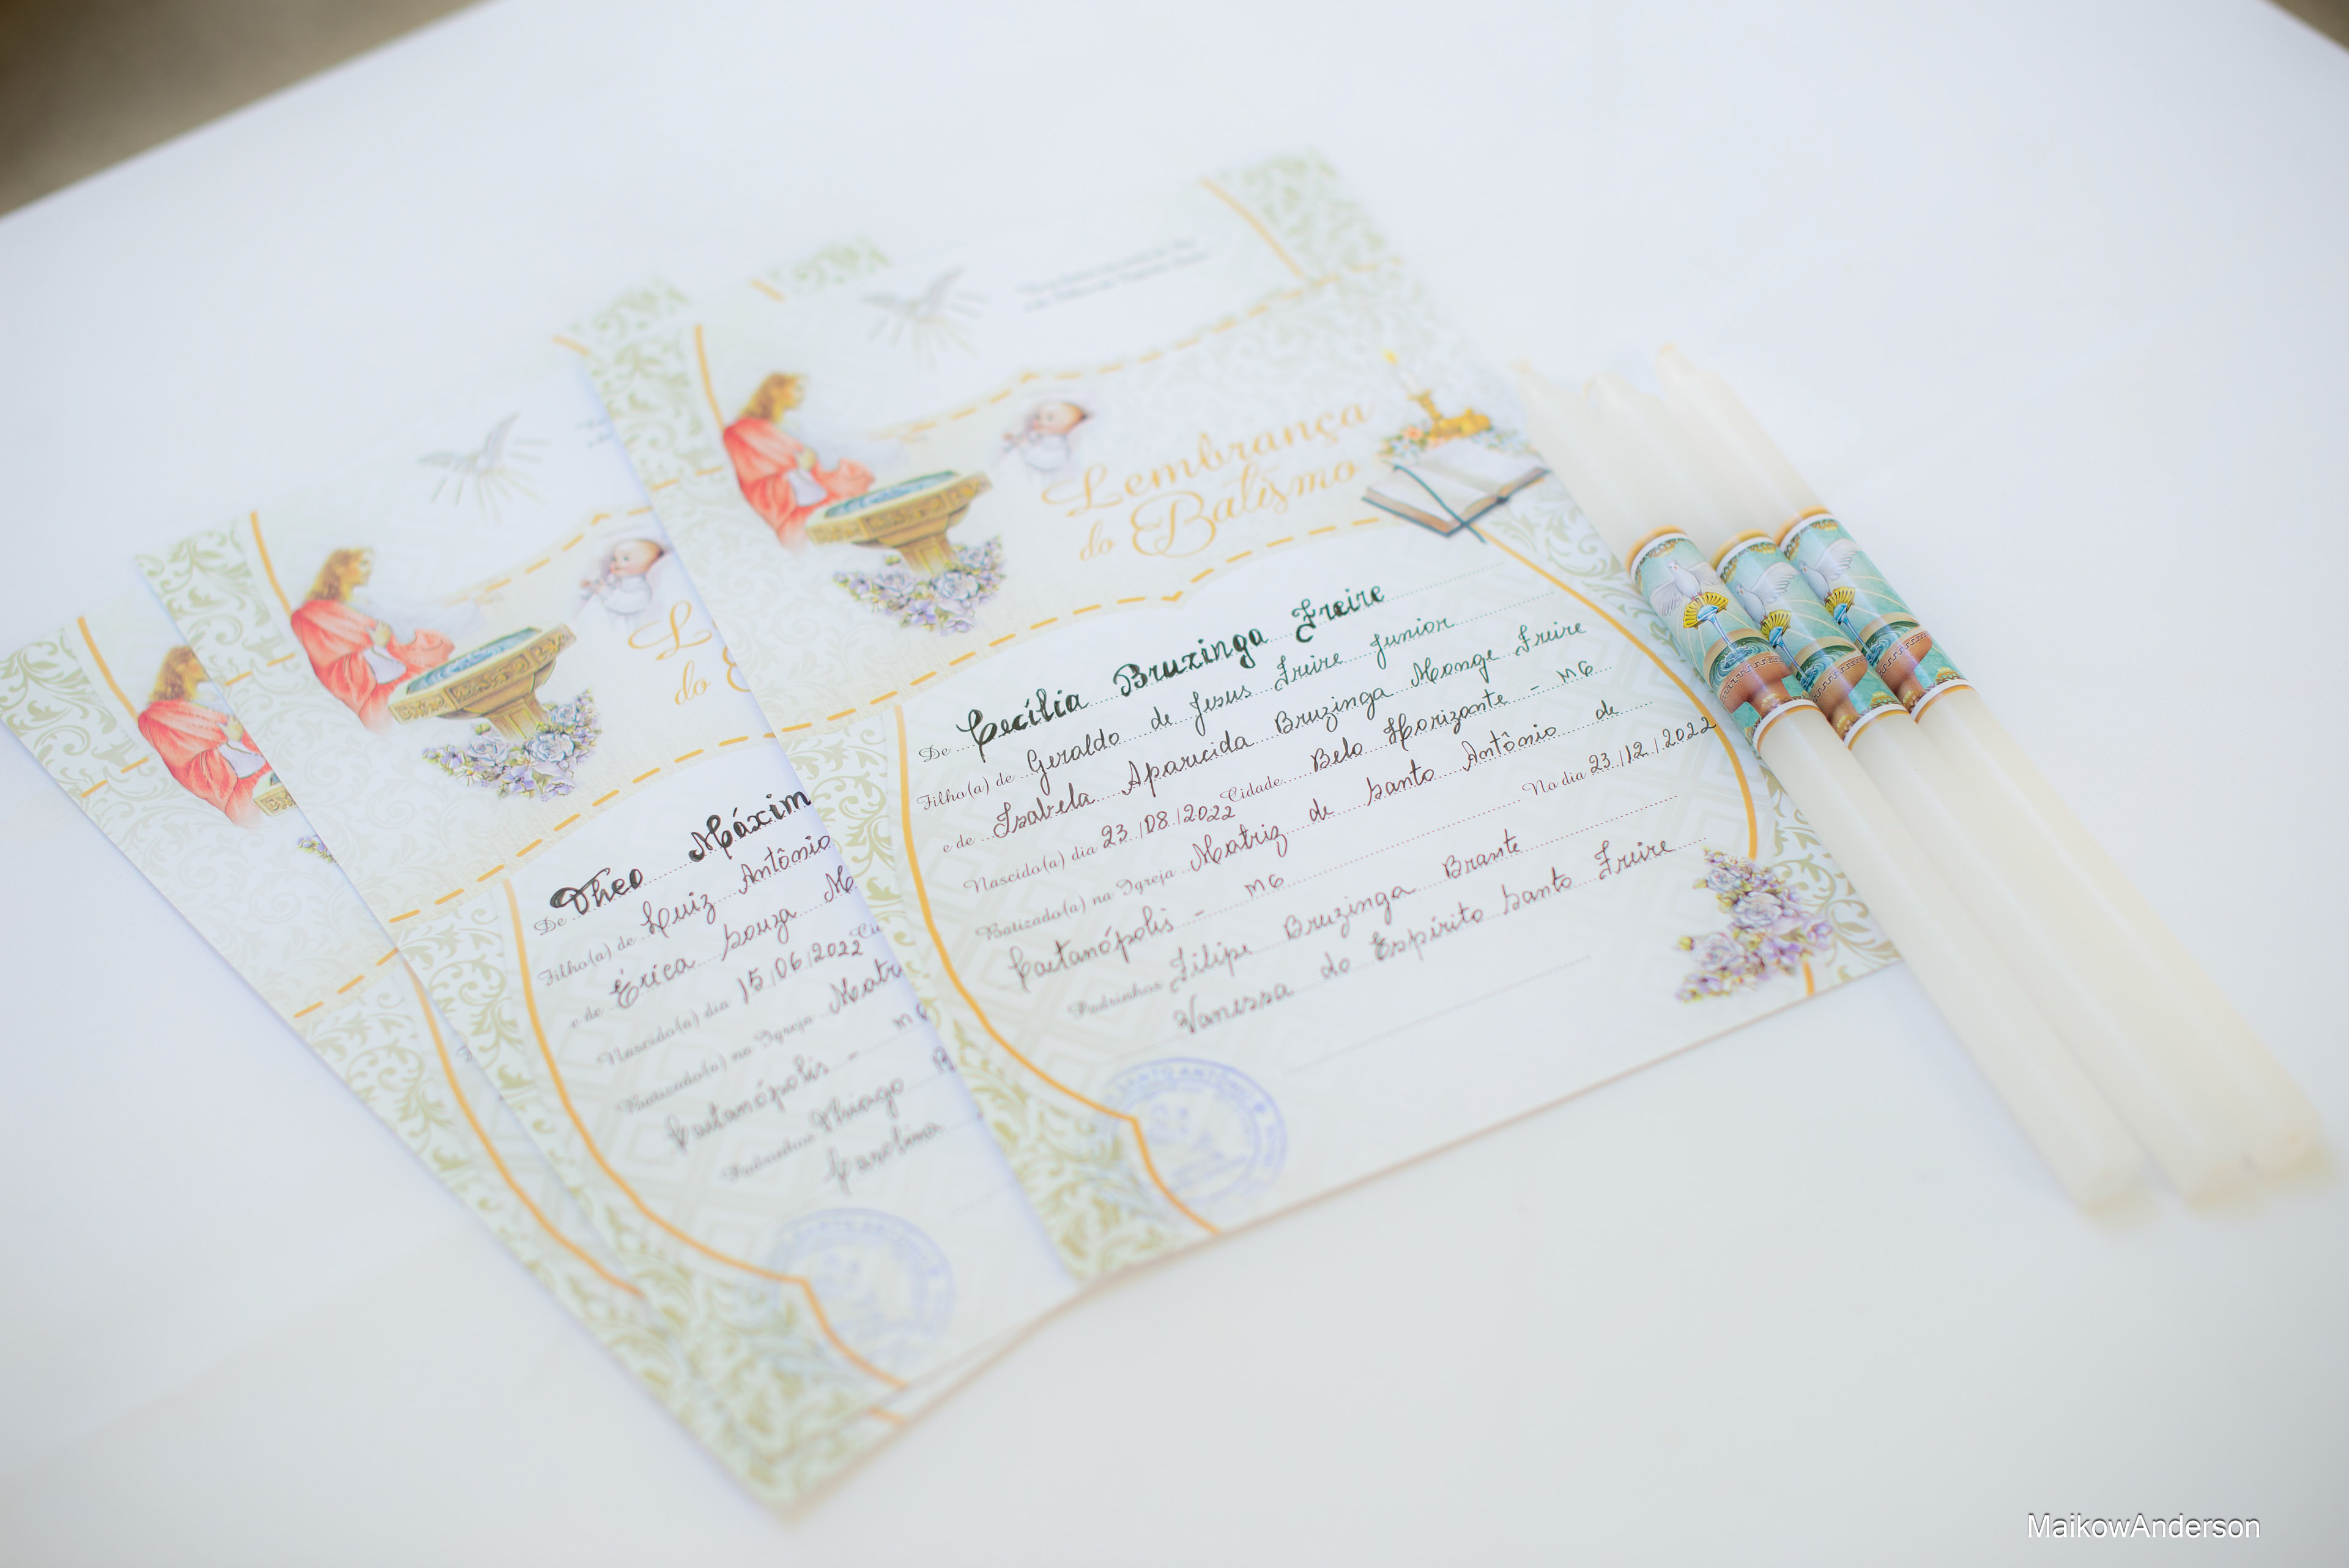 Lembrança
do Batismo
De Cecília Bruzinga Freire
Filho(a) de Geraldo de Jesus Freire Junior
e de Izabela Aparecida Bruzinga Monge Freire
Nascido(a) dia 23/08/2022 Cidade Belo Horizonte - MG
Batizado(a) na Igreja Matriz de Santo Antônio de
Caetanópolis - MG No dia 23/12/2022
Padrinhos Filipe Bruzinga Brante
Vanessa do Espírito Santo Freire
SANTO ANTÔNIO
L
do
De Theo Máxim
Filho(a) de Luiz Antônio
e de Érica Souza M
Nascido(a) dia 15/06/2022 Ci
Batizado(a) na Igreja Matr
Caetanópolis - MG
Padrinhos Thiago B
Carolina
MaikowAnderson